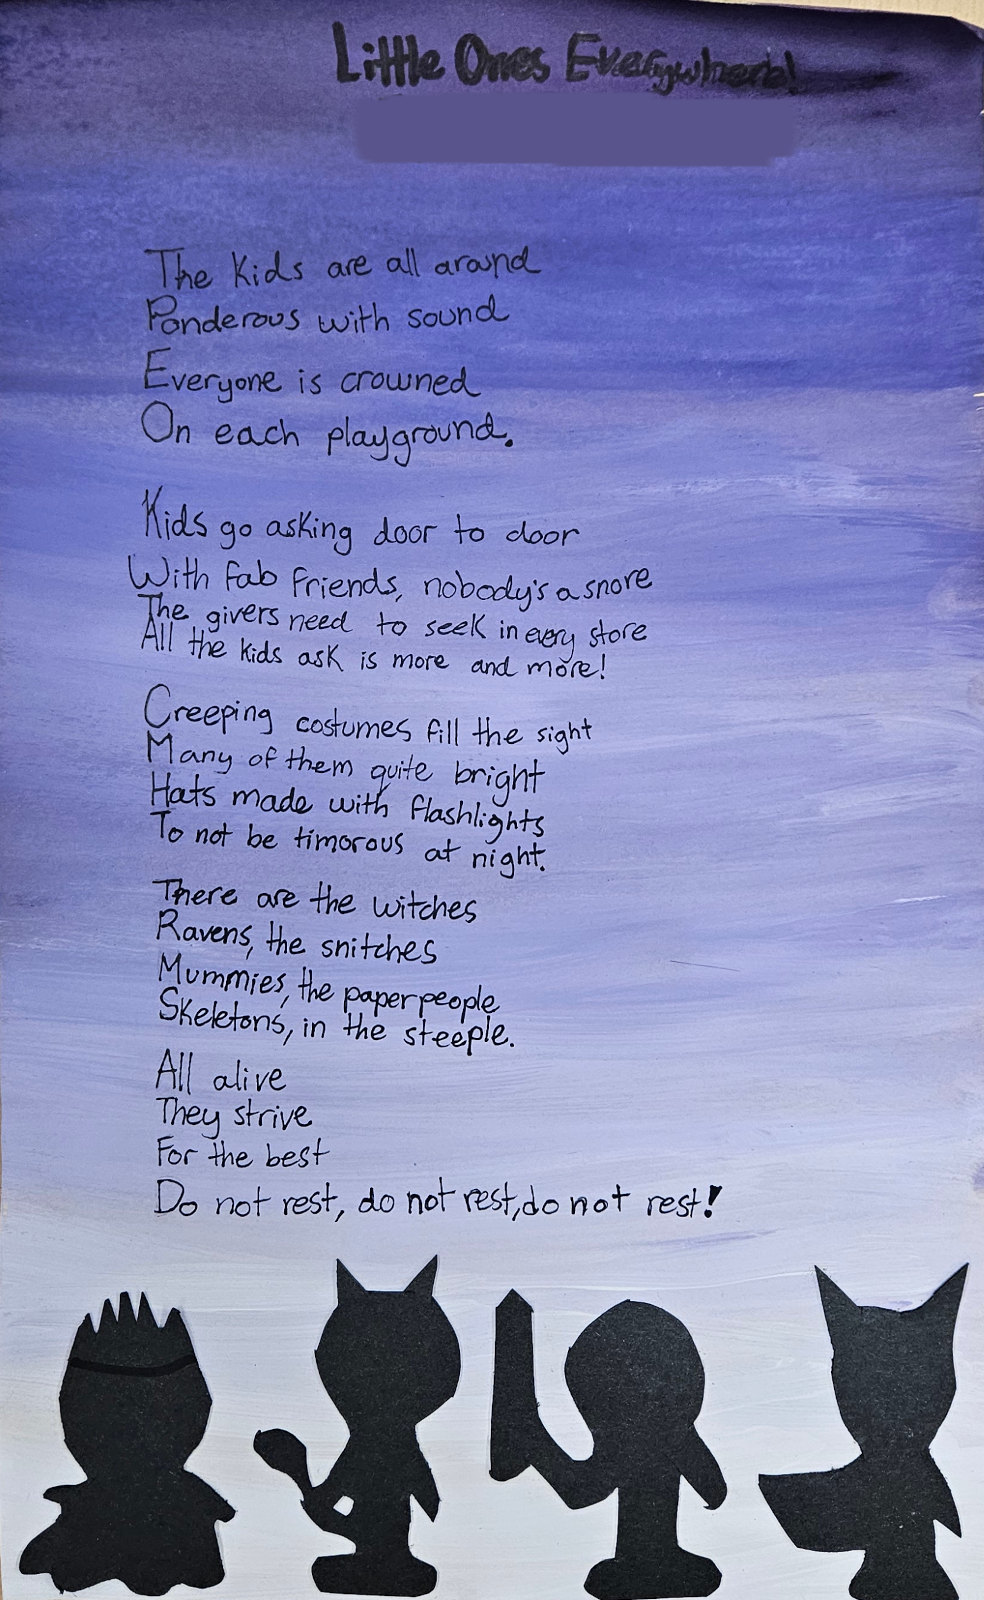 Little Ones Everywhere!
The Kids are all around
Ponderous with sound
Everyone is crowned
On each playground.
Kids go asking door to door
With fab friends, nobody's a snore
The givers need to seek in every store
All the kids ask is more and more!
Creeping costumes fill the sight
Many of them quite bright
Hats made with flashlights
To not be timorous at night.
There are the witches
Ravens, the snitches
Mummies, the paperpeople
Skeletons, in the steeple.
All alive
They strive
For the best
Do not rest, do not rest, do not rest!